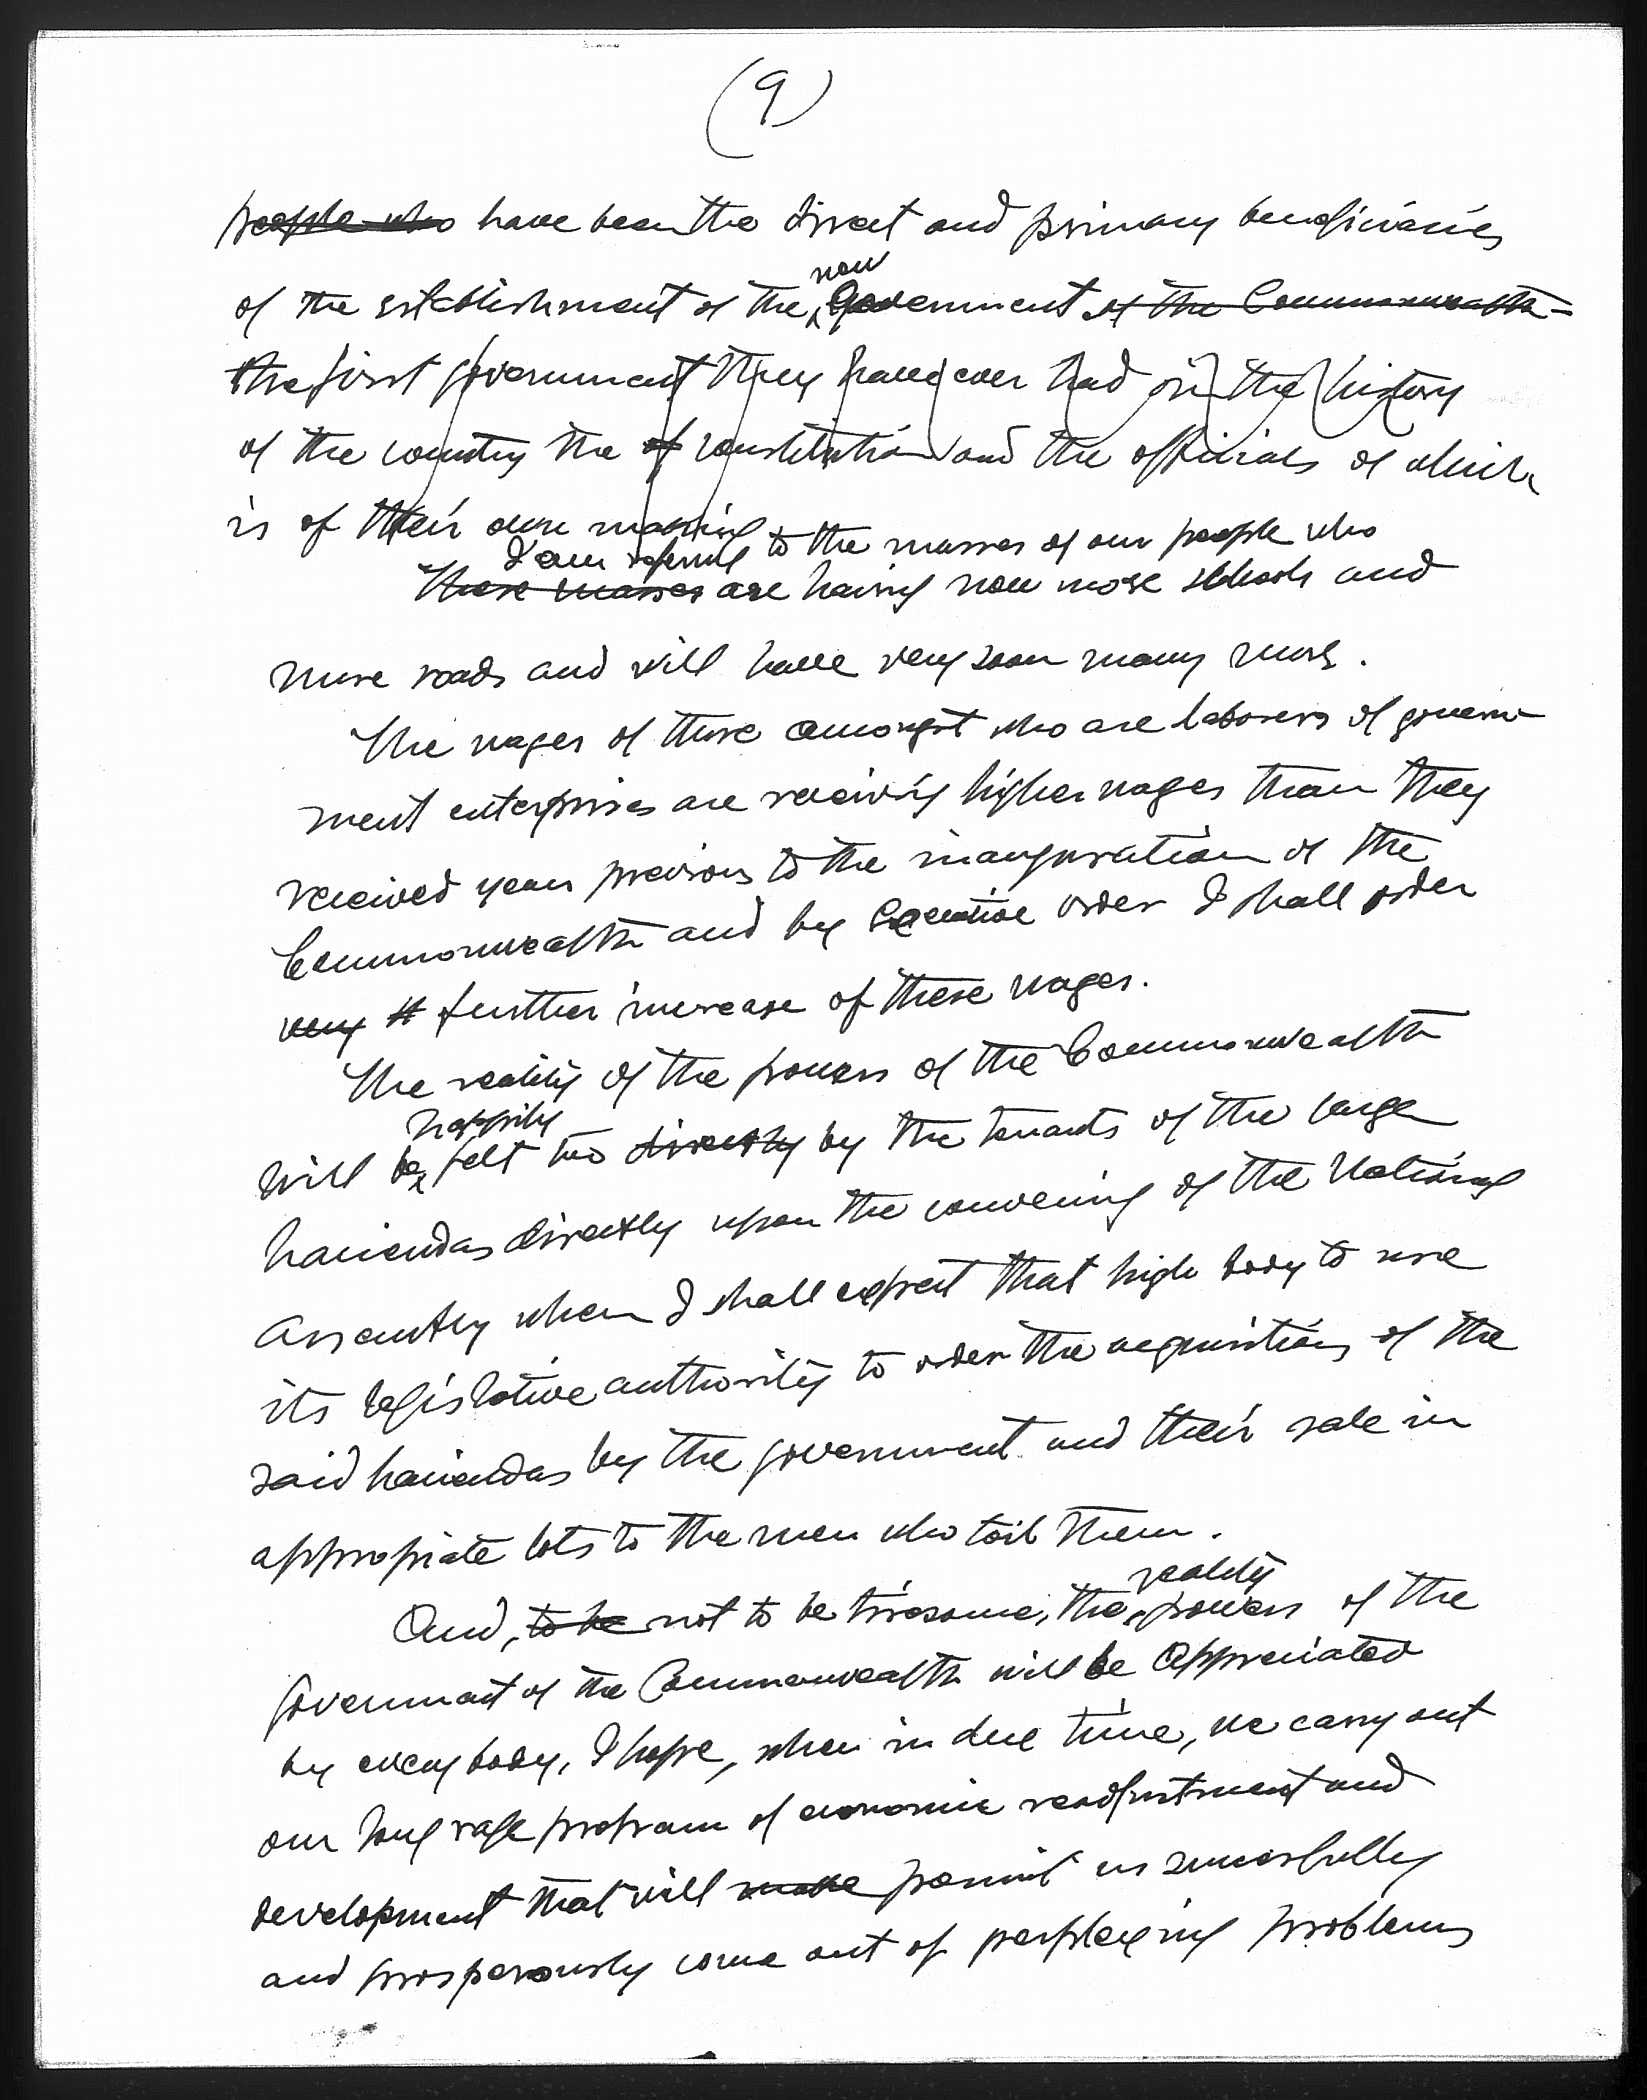 (9)
people who have been the direct and primary beneficiaries
of the establishment of the new Government of the Commonwealth -
the first government they have ever had in the history
of the country the of constitution and the officials of which
is of their own making
I am refering to the masses of our people who
These masses are having now more schools and
more roads and will have very soon many more.
The wages of those amongst who are laborers of govern-
ment enterprises are receiving higher wages than they
received years previous to the inauguration of the
Commonwealth and by Executive order I shall order
very further increase of these wages.
The reality of the powers of the Commonwealth
happily
will be felt too directly by the tenants of the large
haciendas directly upon the convening of the National
Assembly when I shall expect that high body to use
its legislative authority to order the acquisition of the
said haciendas by the government and their sale in
appropiate lots to the men who toil them.
reality
And, to be not to be tiresome, the powers of the
Government of the Commonwealth will be appreciated
by everybody, I hope, when in due time, we carry out
our long rage program of economic readjustment and
development that will make permit us sucessfully
and prosperously come out of perplexing problems